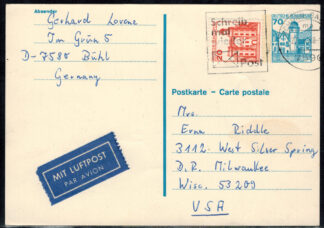 Absender
Gerhard Lorenz
Im Grün 5
D-7580 Bühl
Germany
Schreib
mal
Post
20
70
Postkarte - Carte postale
MIT LUFTPOST
PAR AVION
Mrs.
Erna Riddle
3112 West Silver Spring
D.R. Milwaukee
Wisc. 53209
USA